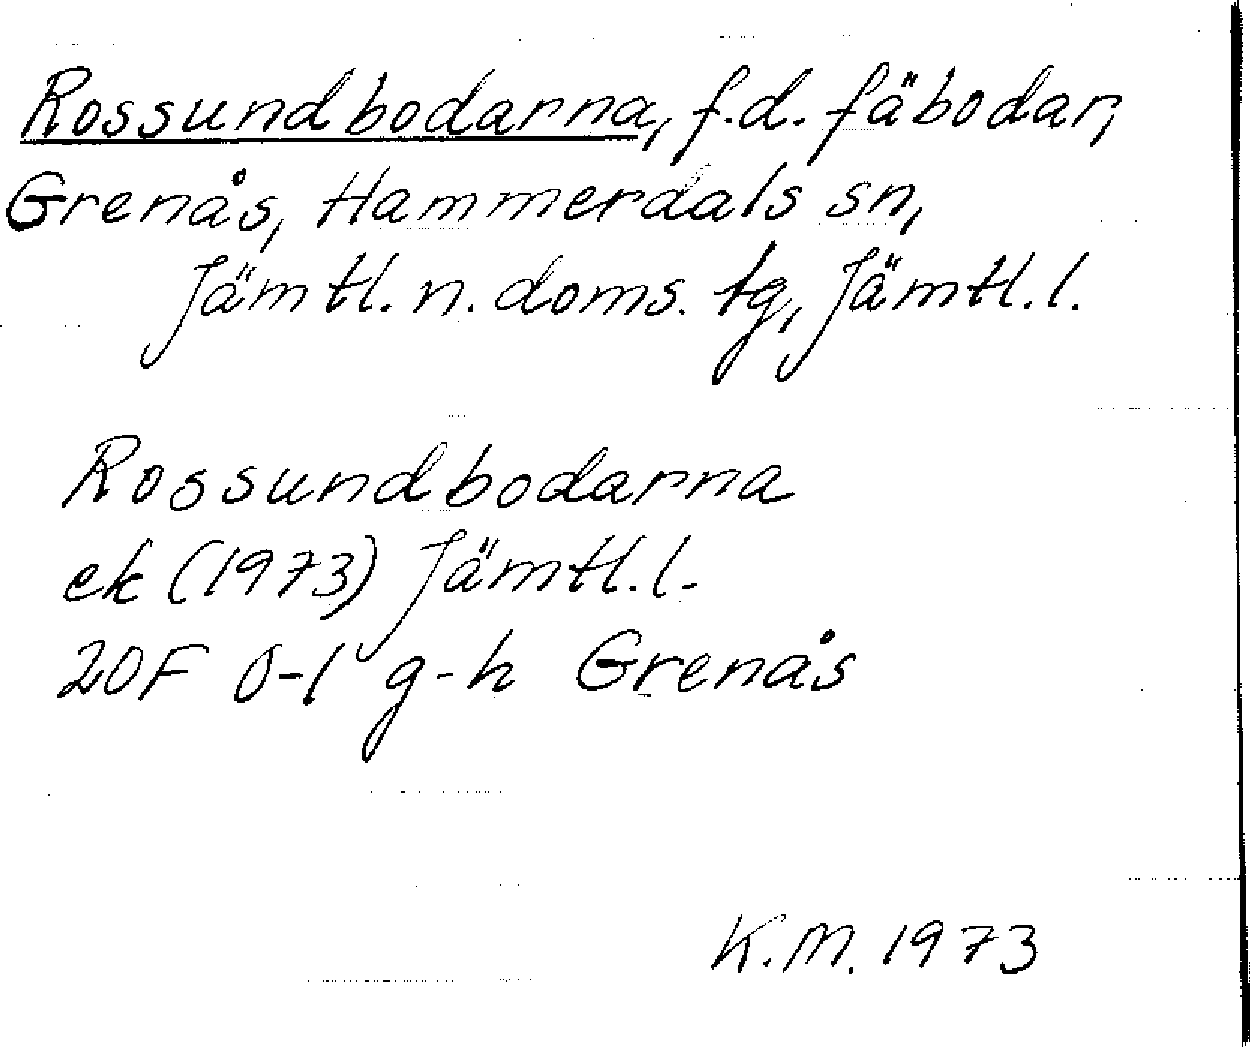 Rossundbodarna, f.d. fäbodar,
Grenås, Hammerdals sn,
Jämtl. n. doms. tg, Jämtl. l.
Rossundbodarna
ek (1973) Jämtl. l.
20F 0-1 g-h Grenås
K.M. 1973